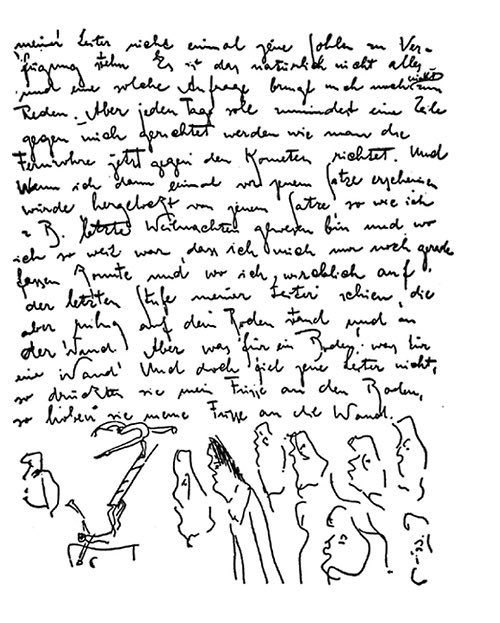 meiner Leiter nicht einmal jene Sohlen zur Ver-
fügung stehn. Es ist das natürlich nicht alles
und eine solche Anfrage bringt mich noch nicht zum
Reden. Aber jeden Tag soll zumindest eine Zeile
gegen mich gerichtet werden wie man die
Fernrohre jetzt gegen den Kometen richtet. Und
wenn ich dann einmal vor jenem Satze erscheinen
würde hergelockt von jenem Satze so wie ich
z. B. letzte Weihnachten gewesen bin und wo
ich so weit war, dass ich mich nur noch gerade
fassen konnte und wo ich wirklich auf
der letzten Stufe meiner Leiter schien, die
aber ruhig auf dem Boden stand und an
der Wand. Aber was für ein Boden! was für
eine Wand! Und doch fiel jene Leiter nicht,
so drückten sie meine Füsse an den Boden,
so hoben sie meine Füsse an die Wand.